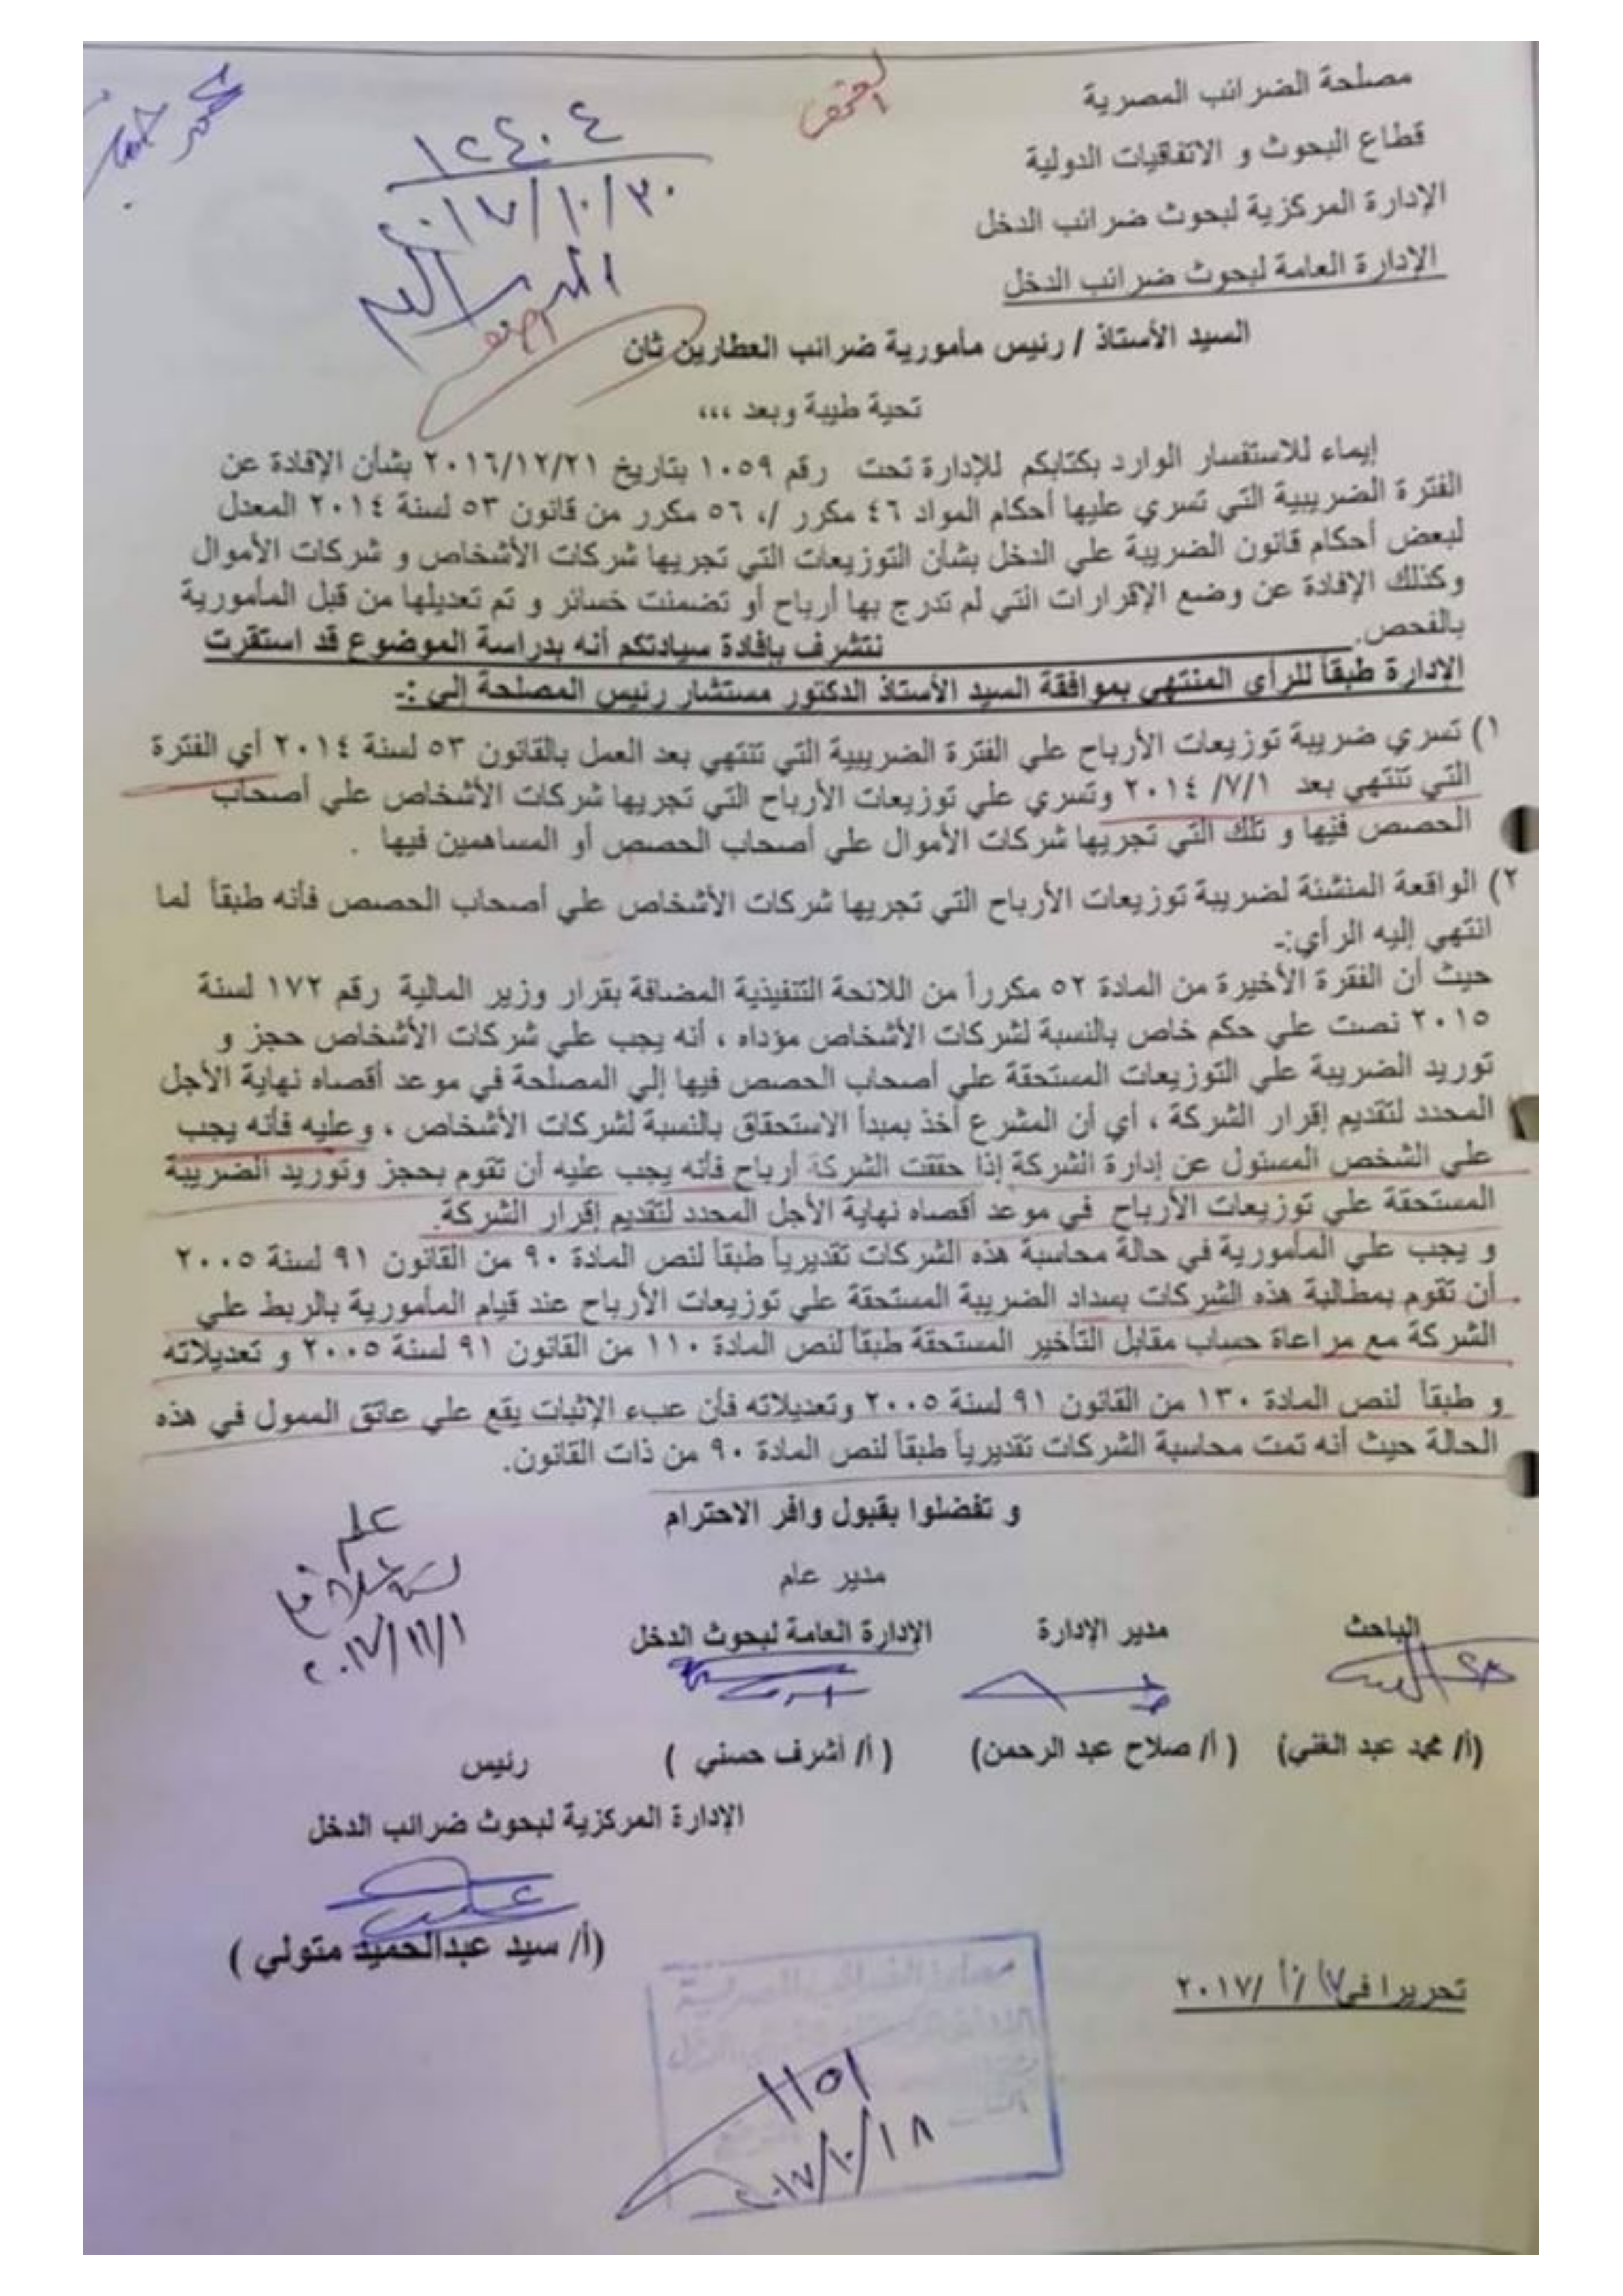 مصلحة الضرائب المصرية
قطاع البحوث و الاتفاقيات الدولية
الإدارة المركزية لبحوث ضرائب الدخل
الإدارة العامة لبحوث ضرائب الدخل
١٢٤٠٤
٢٠١٧/١٠/٣٠
السيد الأستاذ / رئيس مأمورية ضرائب العطارين ثان
تحية طيبة وبعد ،،،
إيماء للاستفسار الوارد بكتابكم للإدارة تحت رقم ١٠٥٩ بتاريخ ٢٠١٦/١٢/٢١ بشأن الإفادة عن
الفترة الضريبية التي تسري عليها أحكام المواد ٤٦ مكرر /، ٥٦ مكرر من قانون ٥٣ لسنة ٢٠١٤ المعدل
لبعض أحكام قانون الضريبة علي الدخل بشأن التوزيعات التي تجريها شركات الأشخاص و شركات الأموال
وكذلك الإفادة عن وضع الإقرارات التي لم تدرج بها أرباح أو تضمنت خسائر و تم تعديلها من قبل المأمورية
بالفحص.
نتشرف بإفادة سيادتكم أنه بدراسة الموضوع قد استقرت
الإدارة طبقاً للرأي المنتهي بموافقة السيد الأستاذ الدكتور مستشار رئيس المصلحة إلي :-
١) تسري ضريبة توزيعات الأرباح علي الفترة الضريبية التي تنتهي بعد العمل بالقانون ٥٣ لسنة ٢٠١٤ أي الفترة
التي تنتهي بعد ٢٠١٤/٧/١ وتسري علي توزيعات الأرباح التي تجريها شركات الأشخاص علي أصحاب
الحصص فيها و تلك التي تجريها شركات الأموال علي أصحاب الحصص أو المساهمين فيها .
٢) الواقعة المنشئة لضريبة توزيعات الأرباح التي تجريها شركات الأشخاص علي أصحاب الحصص فأنه طبقاً لما
انتهي إليه الرأي:-
حيث أن الفقرة الأخيرة من المادة ٥٢ مكرراً من اللائحة التنفيذية المضافة بقرار وزير المالية رقم ١٧٢ لسنة
٢٠١٥ نصت علي حكم خاص بالنسبة لشركات الأشخاص مؤداه ، أنه يجب علي شركات الأشخاص حجز و
توريد الضريبة علي التوزيعات المستحقة علي أصحاب الحصص فيها إلي المصلحة في موعد أقصاه نهاية الأجل
المحدد لتقديم إقرار الشركة ، أي أن المشرع أخذ بمبدأ الاستحقاق بالنسبة لشركات الأشخاص ، وعليه فأنه يجب
علي الشخص المسئول عن إدارة الشركة إذا حققت الشركة أرباح فأنه يجب عليه أن تقوم بحجز وتوريد الضريبة
المستحقة علي توزيعات الأرباح في موعد أقصاه نهاية الأجل المحدد لتقديم إقرار الشركة.
و يجب علي المأمورية في حالة محاسبة هذه الشركات تقديرياً طبقاً لنص المادة ٩٠ من القانون ٩١ لسنة ٢٠٠٥
أن تقوم بمطالبة هذه الشركات بسداد الضريبة المستحقة علي توزيعات الأرباح عند قيام المأمورية بالربط علي
الشركة مع مراعاة حساب مقابل التأخير المستحقة طبقاً لنص المادة ١١٠ من القانون ٩١ لسنة ٢٠٠٥ و تعديلاته
و طبقاً لنص المادة ١٣٠ من القانون ٩١ لسنة ٢٠٠٥ وتعديلاته فأن عبء الإثبات يقع علي عاتق الممول في هذه
الحالة حيث أنه تمت محاسبة الشركات تقديرياً طبقاً لنص المادة ٩٠ من ذات القانون.
و تفضلوا بقبول وافر الاحترام
٢٠١٧/١١/١
مدير عام
الباحث مدير الإدارة الإدارة العامة لبحوث الدخل
(أ/ محمد عبد الغني) (أ/ صلاح عبد الرحمن) (أ/ أشرف حسني ) رئيس
الإدارة المركزية لبحوث ضرائب الدخل
(أ/ سيد عبدالحميد متولي )
تحريرا في ١٧/ ١٠/ ٢٠١٧
مصلحة الضرائب المصرية
١١٥١
٢٠١٧/١٠/١٨